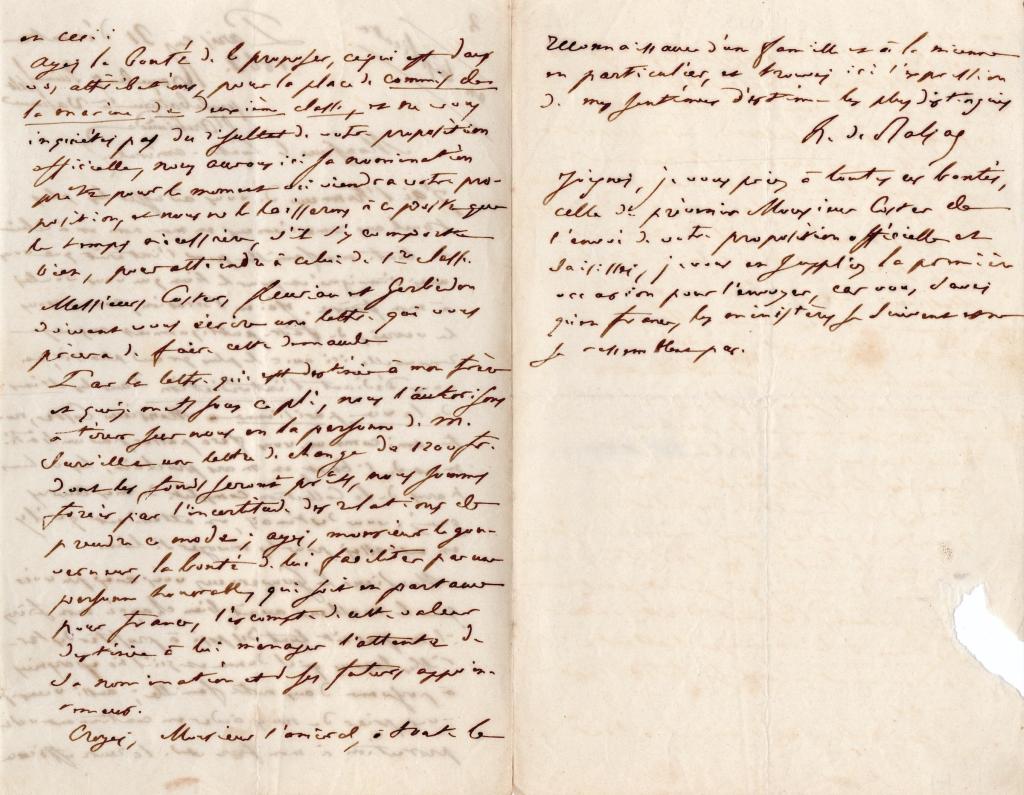 et ceci :
ayez la bonté de le proposer, ce qui est dans
vos attributions, pour la place de commis de
la marine, de deuxième classe, et ne vous
inquiétez pas du résultat de votre proposition
officielle, nous aurons ici sa nomination
prête pour le moment où viendra votre pro-
position, et nous ne le laisserons à ce poste que
le temps nécessaire, s'il s'y comporte
bien, pour atteindre à celui de 1re classe.
Messieurs Coster, fleuriau et
doivent vous écrire une lettre qui vous
priera de faire cette demande
Par la lettre qui est destinée à mon frère
et qui est sous ce pli, nous l'autorisons
à tirer sur nous en la personne de M.
Surville une lettre de change de 1200 fr.
dont les fonds seront prêts, nous sommes
forcés par l'incertitude des relations de
prendre ce mode ; ayez, monsieur le gou-
verneur, la bonté de lui faciliter par une
personne honorable, qui soit en partance
pour france, l'escompte de cette valeur
destinée à lui ménager l'attente de
sa nomination et de ses futurs appoin-
-mens.
Croyez, Monsieur l'amiral, à toute la
reconnaissance d'une famille et à la mienne
en particulier, et trouvez ici l'expression
de mes sentimens d'estime les plus distingués
H. de Balzac
Joignez, je vous prie, à toutes ces bontés,
celle de prévenir Monsieur Coster de
l'envoi de votre proposition officielle et
saisissez, je vous en supplie, la première
occasion pour l'envoyer, car vous savez
qu'en france, les ministères se suivent et ne
se ressemblent pas.